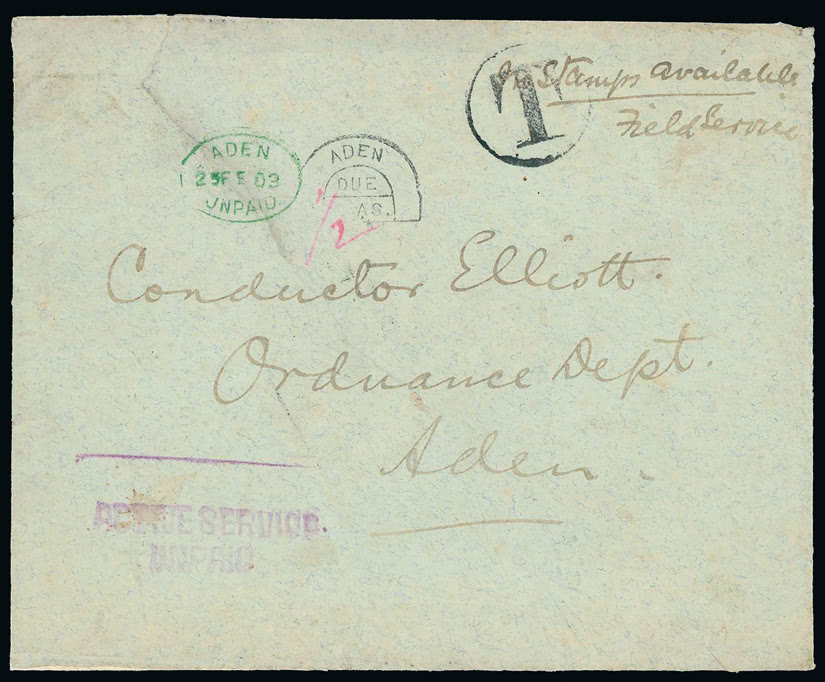 Stamps available
Field Service
T
ADEN
25 FE 03
UNPAID
ADEN
DUE
AS.
1/2
Conductor Elliott.
Ordnance Dept.
Aden.
ACTIVE SERVICE.
UNPAID